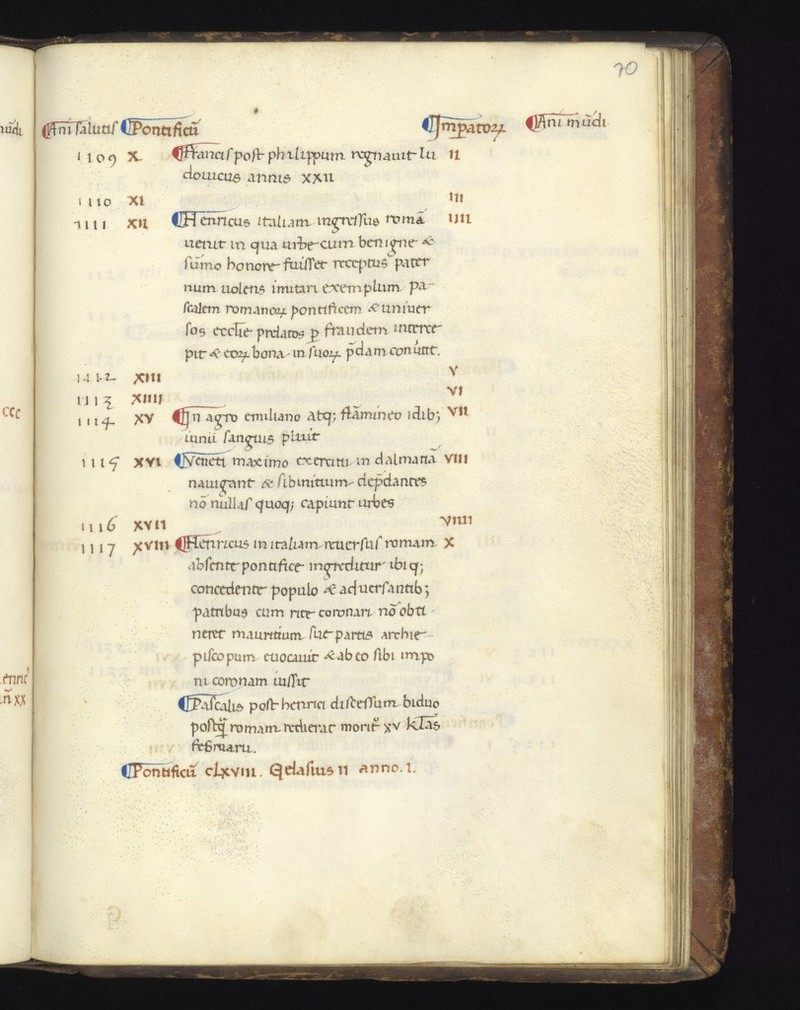 70
Ani salutis Pontificū Imperatoꝝ Ani mūdi
1109 X Francis post philippum regnauit lu II
douicus annis XXII
1110 XI III
1111 XII Henricus italiam ingressus romā IIII
uenit in qua urbe cum benigne &
sūmo honore fuisset receptus pater
num uolens imitari exemplum pa-
scalem romanoꝝ pontificem & uniuer
sos eccl̄ie prelatos ꝑ fraudem interce
pit & eoꝝ bona in suoꝝ p̄dam conūtit.
1112 XIII V
1113 XIIII VI
1114 XV In agro emiliano atq; flāmineo idib; VII
iunii sanguis pluit
1115 XVI Veneti maximo exercitu in dalmatiā VIII
nauigant & sibinitium dep̄dantes
nō nullas quoq; capiunt urbes
1116 XVII VIIII
1117 XVIII Henricus in italiam reuersus romam X
absente pontifice ingreditur ibiq;
concedente populo & aduersantib;
patribus cum rite coronari nō obti
neret mauritium sue partis archie-
piscopum euocauit & ab eo sibi impo
ni coronam iussit
Pascalis post henrici discessum biduo
postq̄ romam redierat moritᷣ xv kl̄as
februarii.
Pontificū CLXVIII. Gelasius II anno. 1.